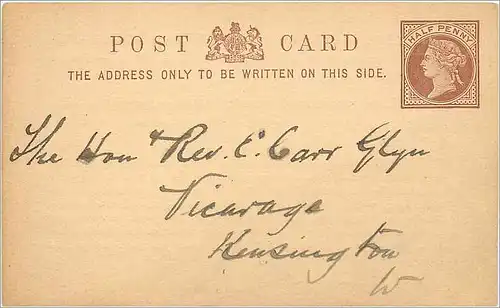 POST CARD
HALF PENNY
THE ADDRESS ONLY TO BE WRITTEN ON THIS SIDE.
The Hon & Rev. E. Carr Glyn
Vicarage
Kensington
W